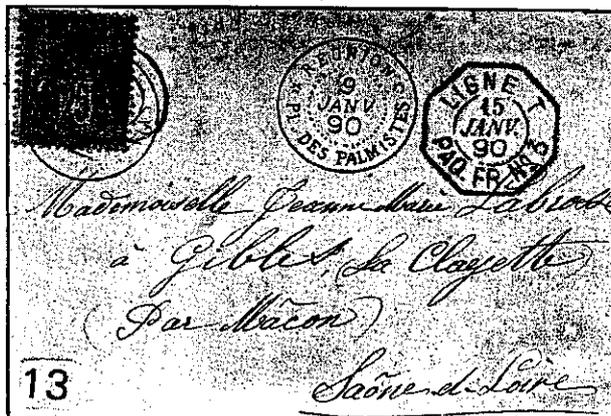 RÉUNION
9
JANV
90
PL. DES PALMISTES
LIGNE T
15
JANV.
90
PAQ. FR. Nº 3
Mademoiselle Jeanne Marie
à Gibles, La Clayette
(Par Mâcon)
Saône-et-Loire
13